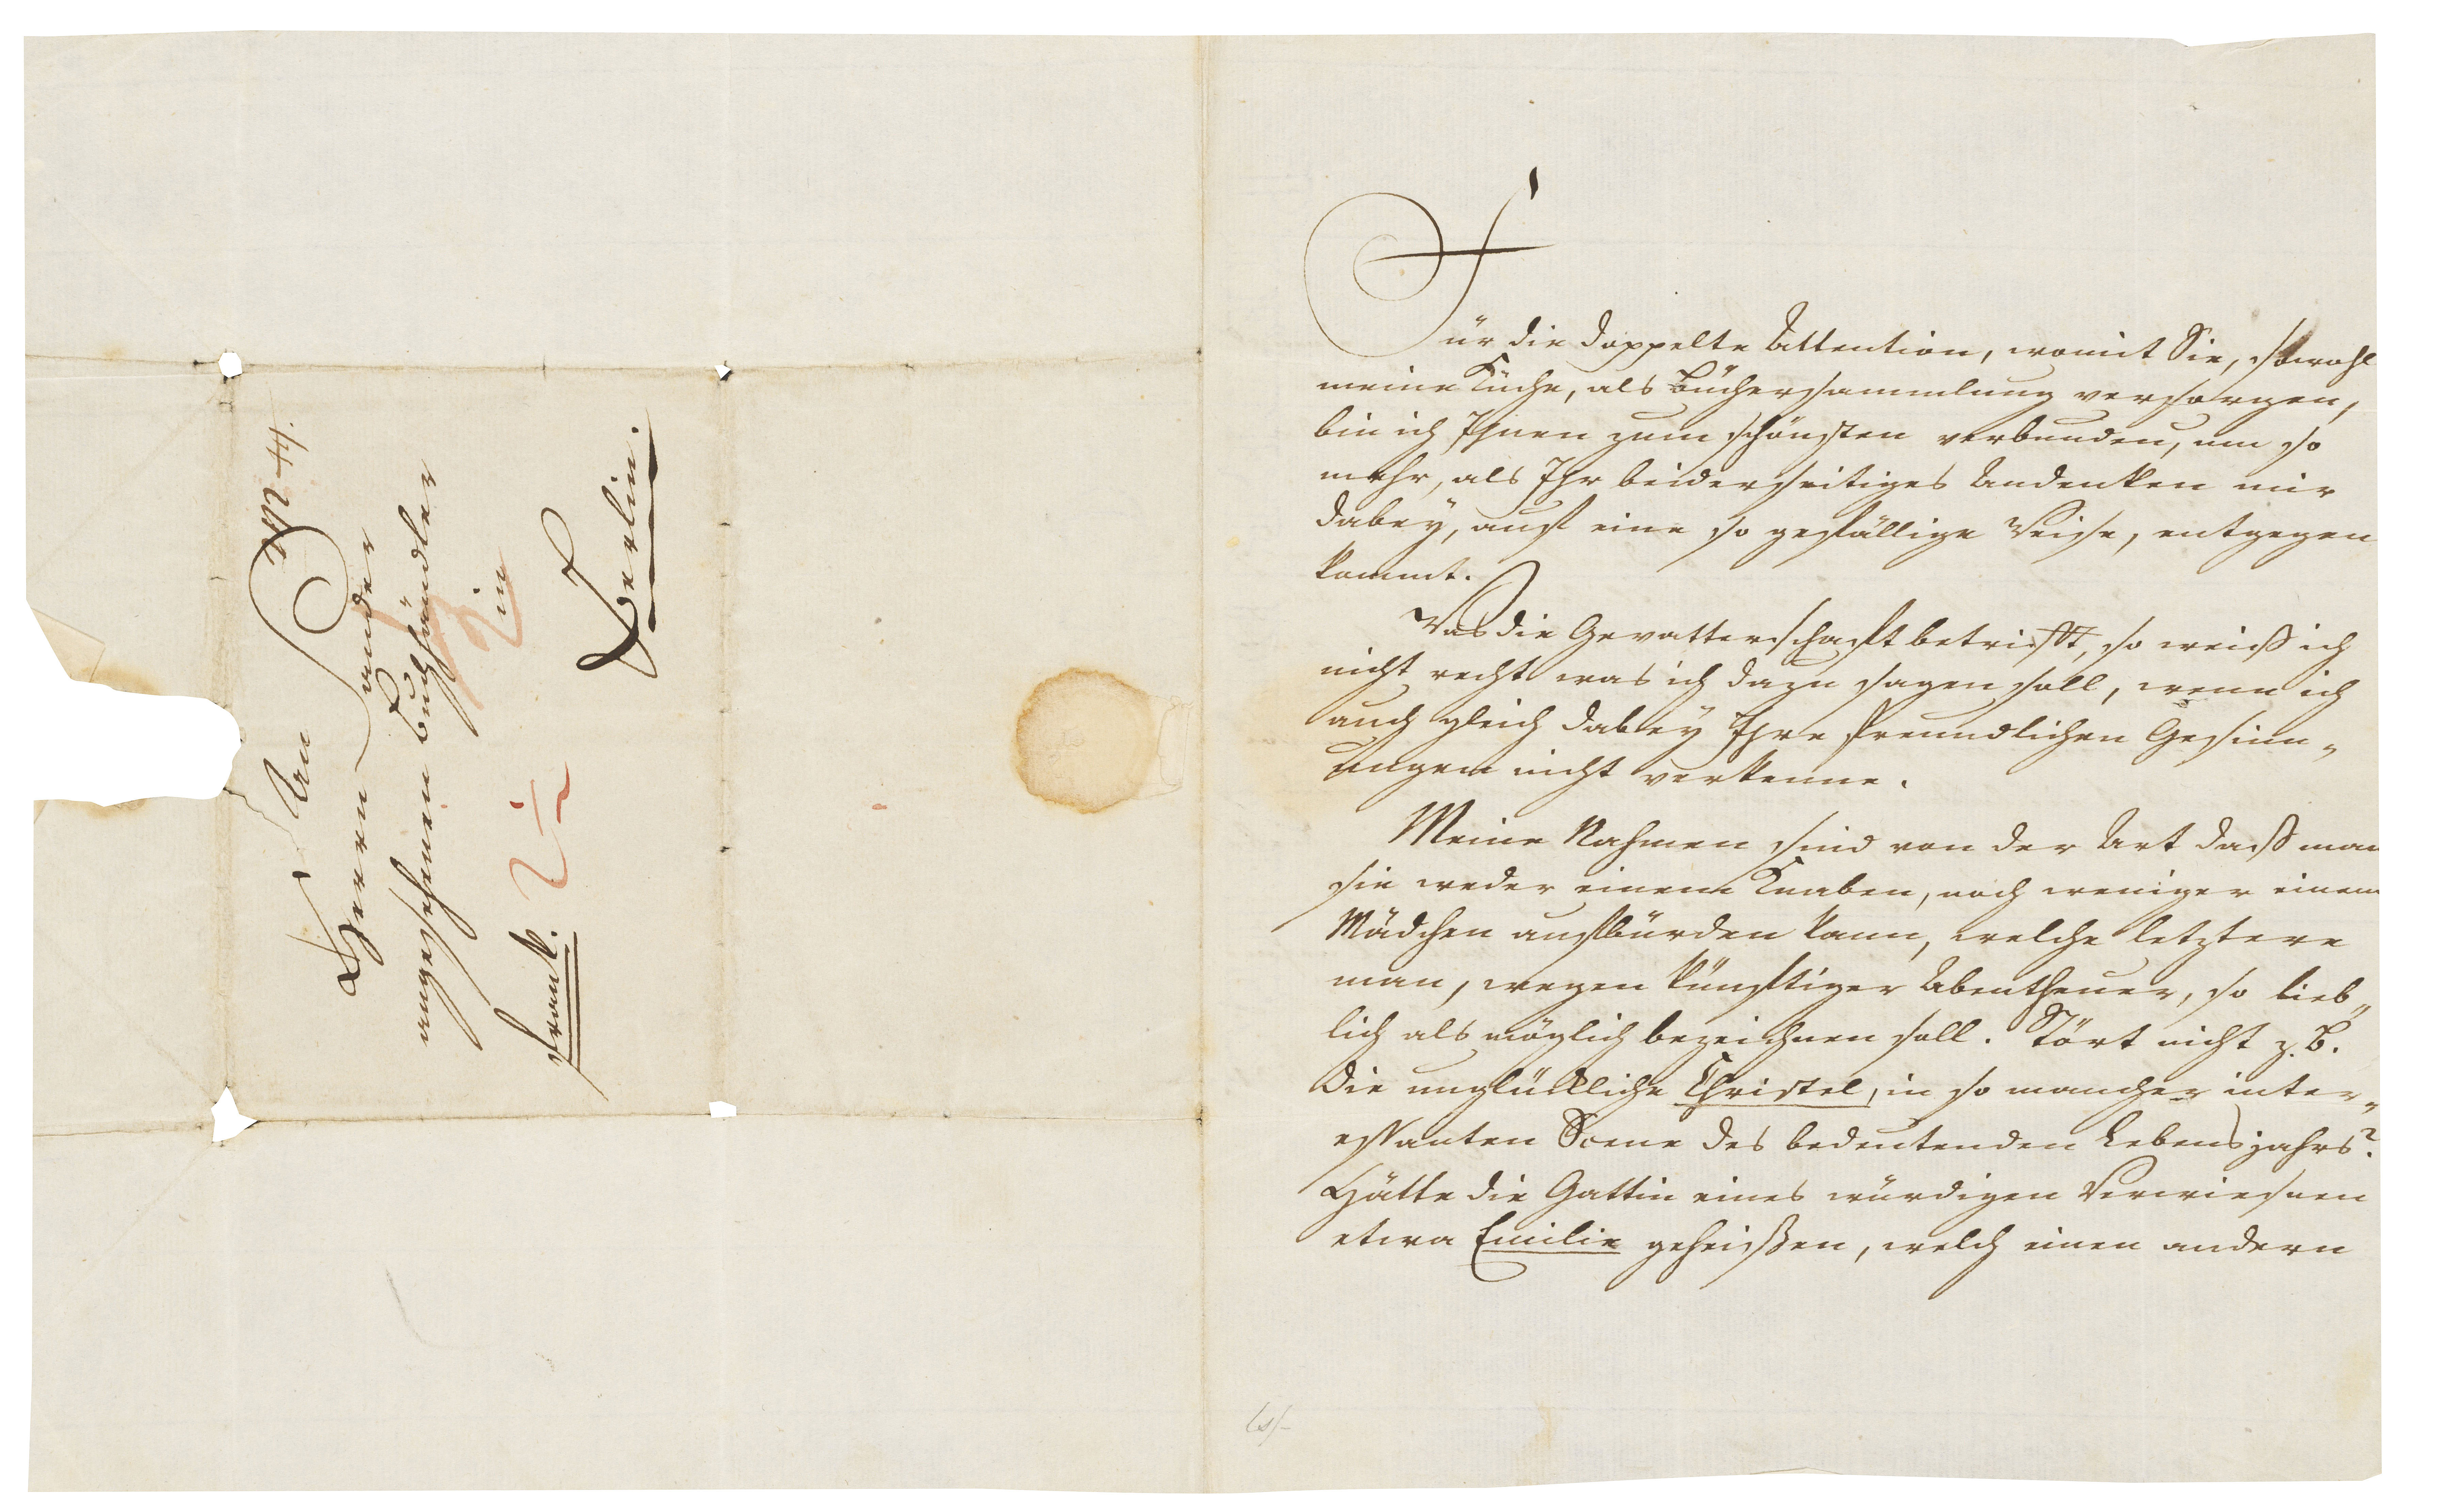 An
Herrn Sander
angesehenen Buchhändler
in
Berlin.
frank.
Für die doppelte Attention, womit Sie, sowohl
meine Küche, als Büchersammlung versorgen,
bin ich Ihnen zum schönsten verbunden, um so
mehr, als Ihr beiderseitiges Andenken mir
dabey, auf eine so gefällige Weise, entgegen
kommt.
Was die Gevatterschaft betrifft, so weiß ich
nicht recht was ich dazu sagen soll, wenn ich
auch gleich dabey Ihre freundlichen Gesinn-
ungen nicht verkenne.
Meine Nahmen sind von der Art daß man
sie weder einem Knaben, noch weniger einem
Mädchen aufbürden kann, welche letztere
man, wegen künftiger Abentheuer, so lieb-
lich als möglich bezeichnen soll. Stört nicht z. B.
die unglückliche Christel, in so mancher inter-
essanten Scene des bedeutenden Lebensjahrs?
Hätte die Gattin eines würdigen Verwiesnen
etwa Emilie geheißen, welch einen andern